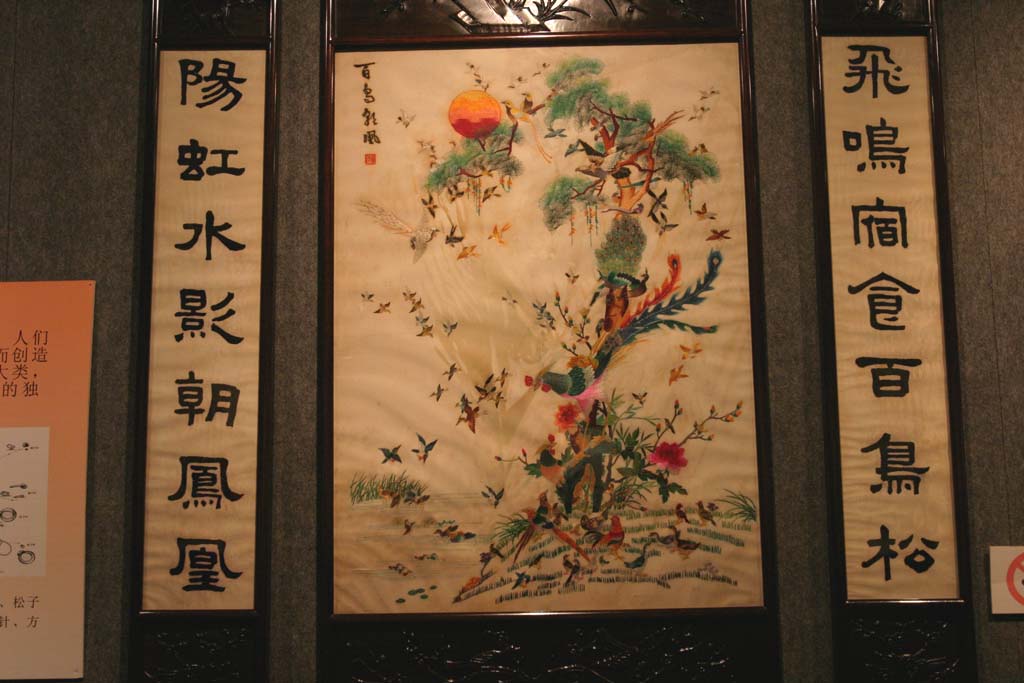 飛鳴宿食百鳥松
百鳥朝鳳
陽虹水影朝鳳凰
人们
而创造
大类，
的独
、松子
针、方